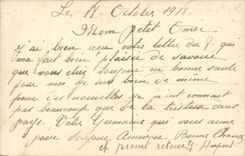 Le 11 Octobre 1918.
Mon petit Omer
J'ai bien reçu votre lettre du 8. qui
m'a fait bien plaisir de savoir
que vous êtes toujours en bonne santé
pour moi de même
pour des nouvelles je ne peut
pas beaucoup que de la tristesse dans
pays. Votre Germaine qui vous aime
pour toujours. Bonne Chance
et prompt retour